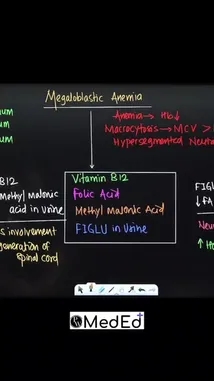 Megaloblastic Anemia
Anemia → Hb↓
Macrocytosis → MCV >
Hypersegmented Neutr
num
um
um
B12
Methyl malonic
acid in Urine
s involvement
generation of
Spinal cord
Vitamin B12
Folic Acid
Methyl Malonic Acid
FIGLU in Urine
FIGL
↓FA
Neu
MedEd